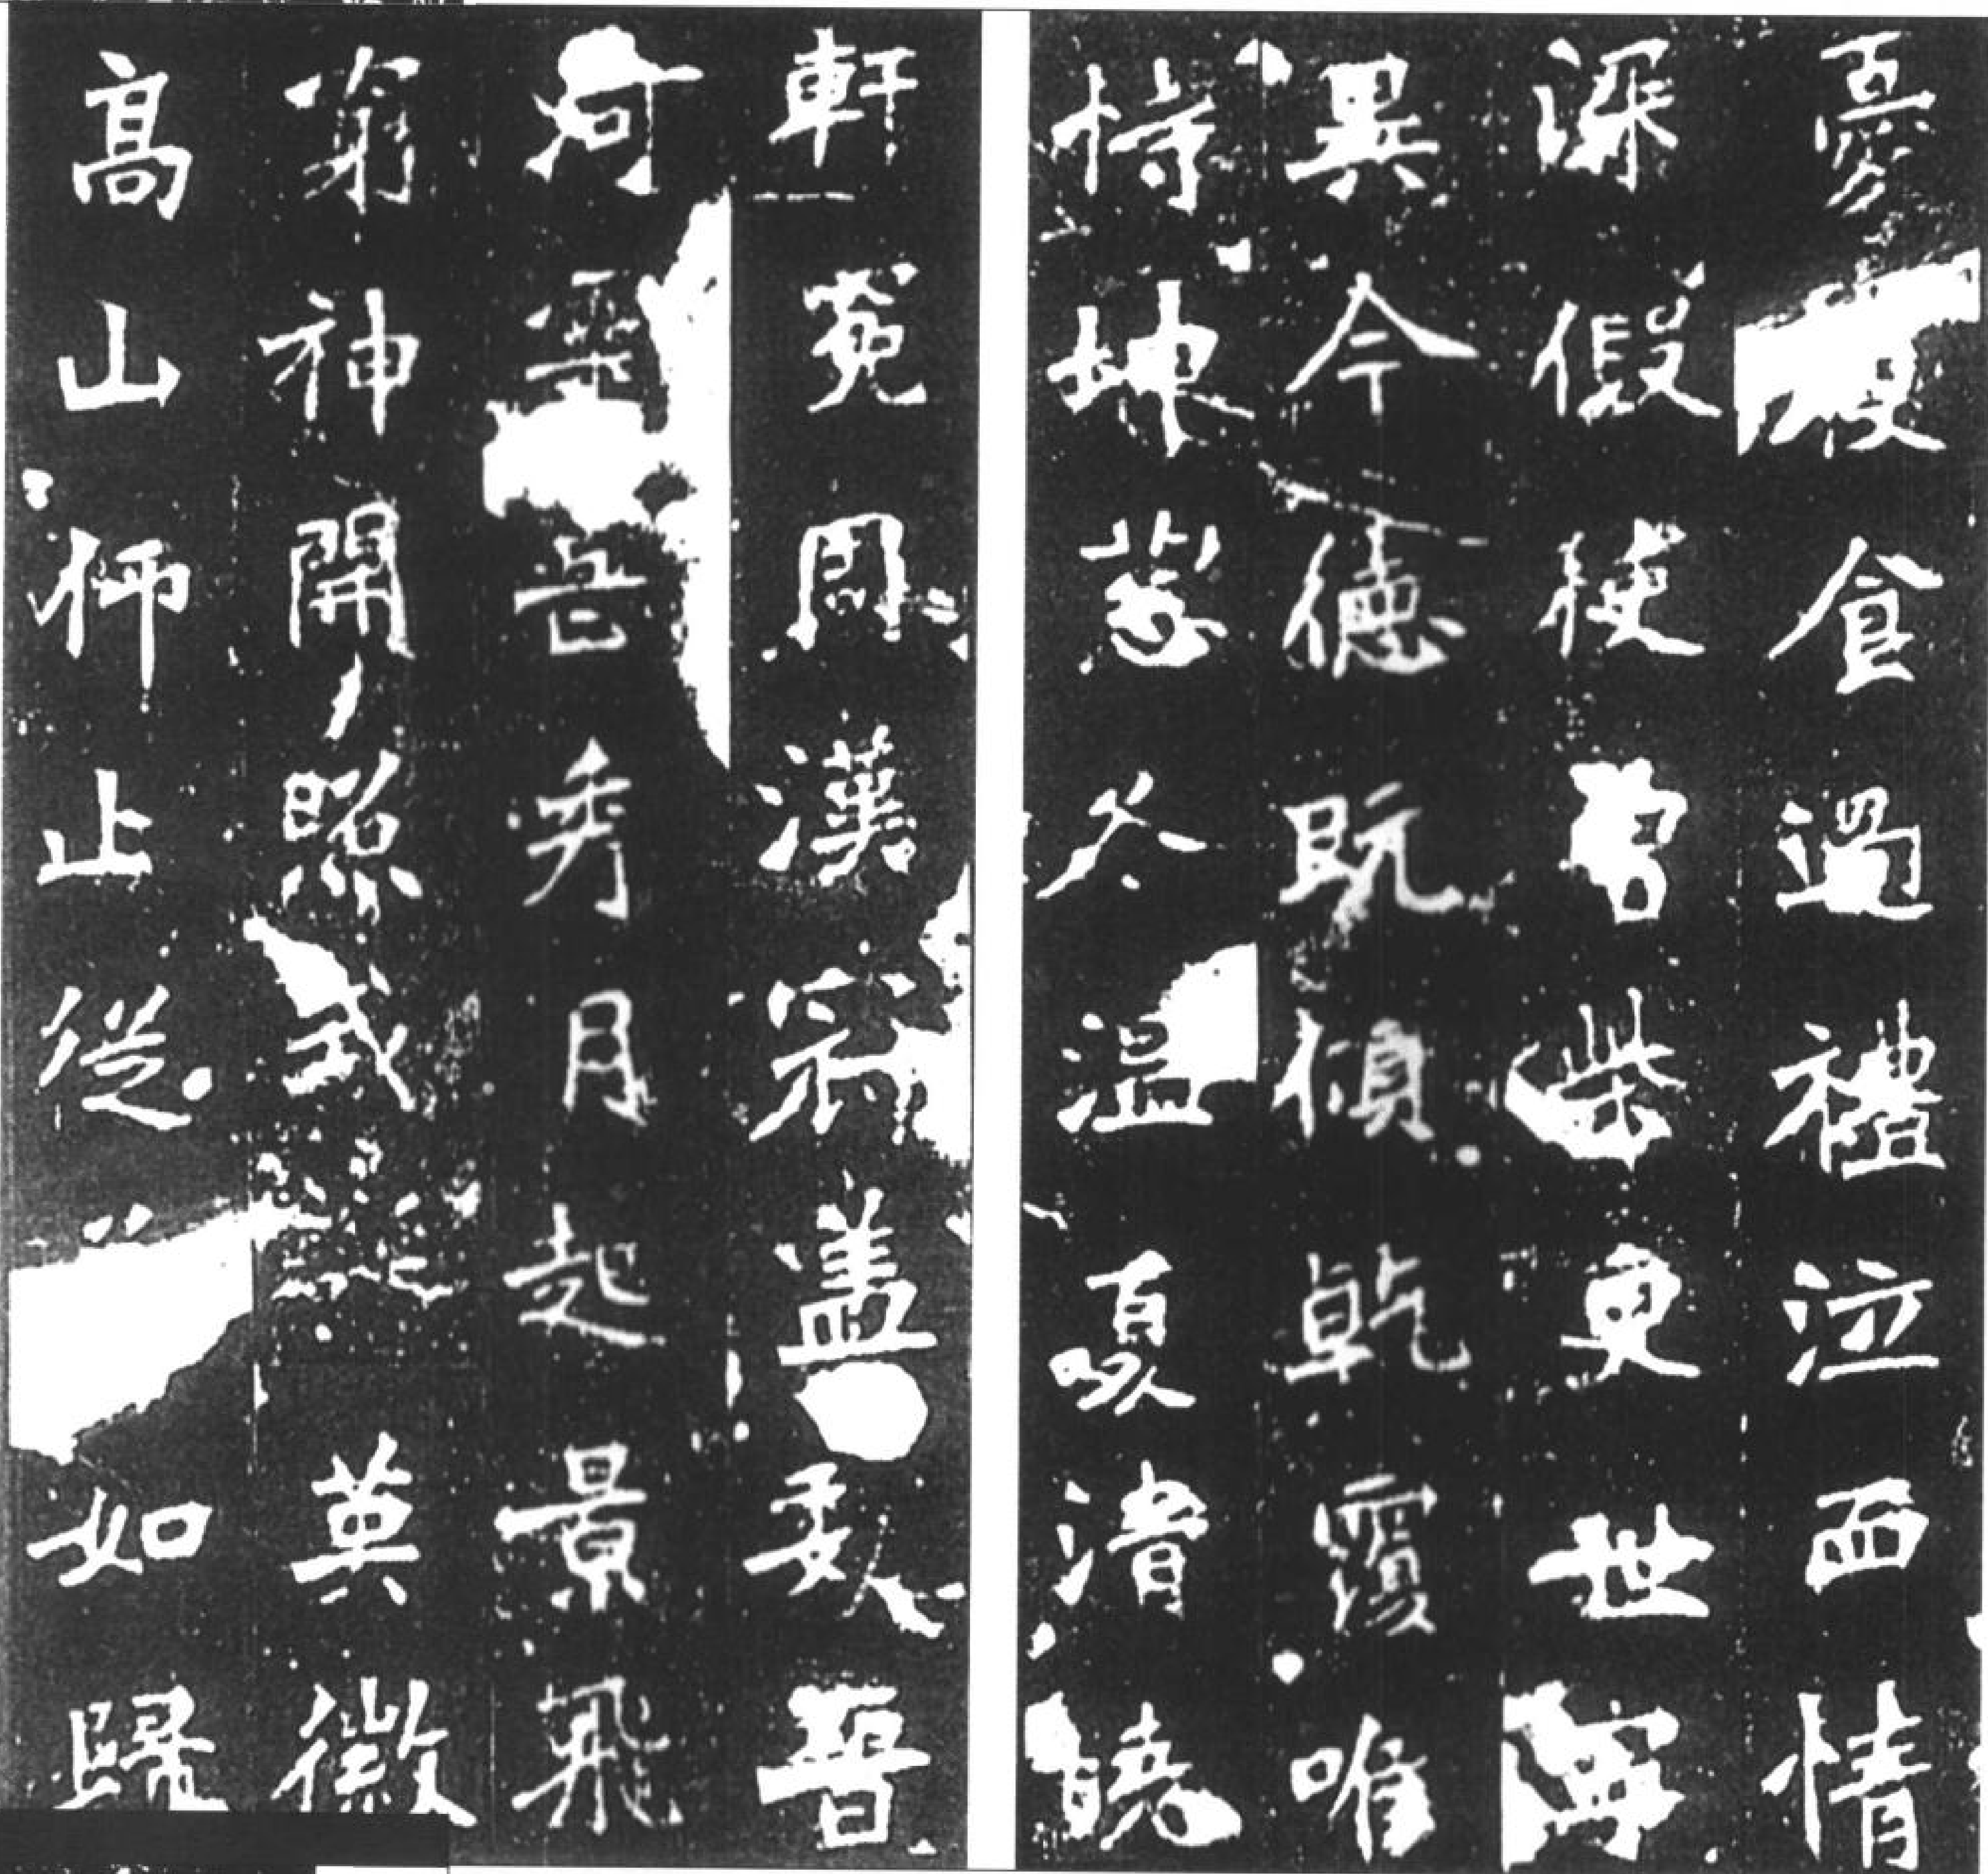 憂寢食過禮泣血情
深假使曾柴更世寧
異今德既傾乾覆唯
恃坤慈冬溫夏清曉
軒冕周漢冠蓋魏晉
河靈岳秀月起景飛
窮神開照式誕英徽
高山仰止從如歸